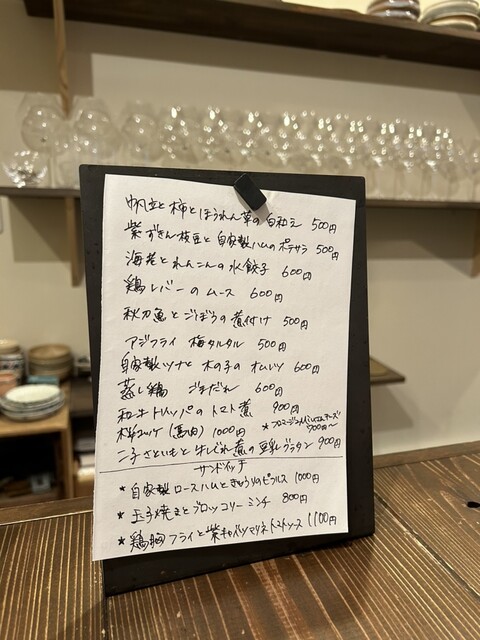 帆立と柿とほうれん草の白和え 500円
紫ずきん枝豆と自家製ハムのポテサラ 500円
海老とれんこんの水餃子 600円
鶏レバーのムース 600円
秋刀魚とごぼうの煮付け 500円
アジフライ 梅タルタル 500円
自家製ツナと木の子のオムレツ 600円
蒸し鶏 ごまだれ 600円
和牛トリッパのトマト煮 900円
桜ユッケ(馬肉) 1000円
900円〜
二子さといもと牛しぐれ煮の豆乳グラタン 900円
サンドイッチ
★自家製ロースハムときゅうりのピクルス 1000円
★玉子焼きとブロッコリーミンチ 800円
★鶏胸フライと紫キャベツマリネトマトソース 1100円